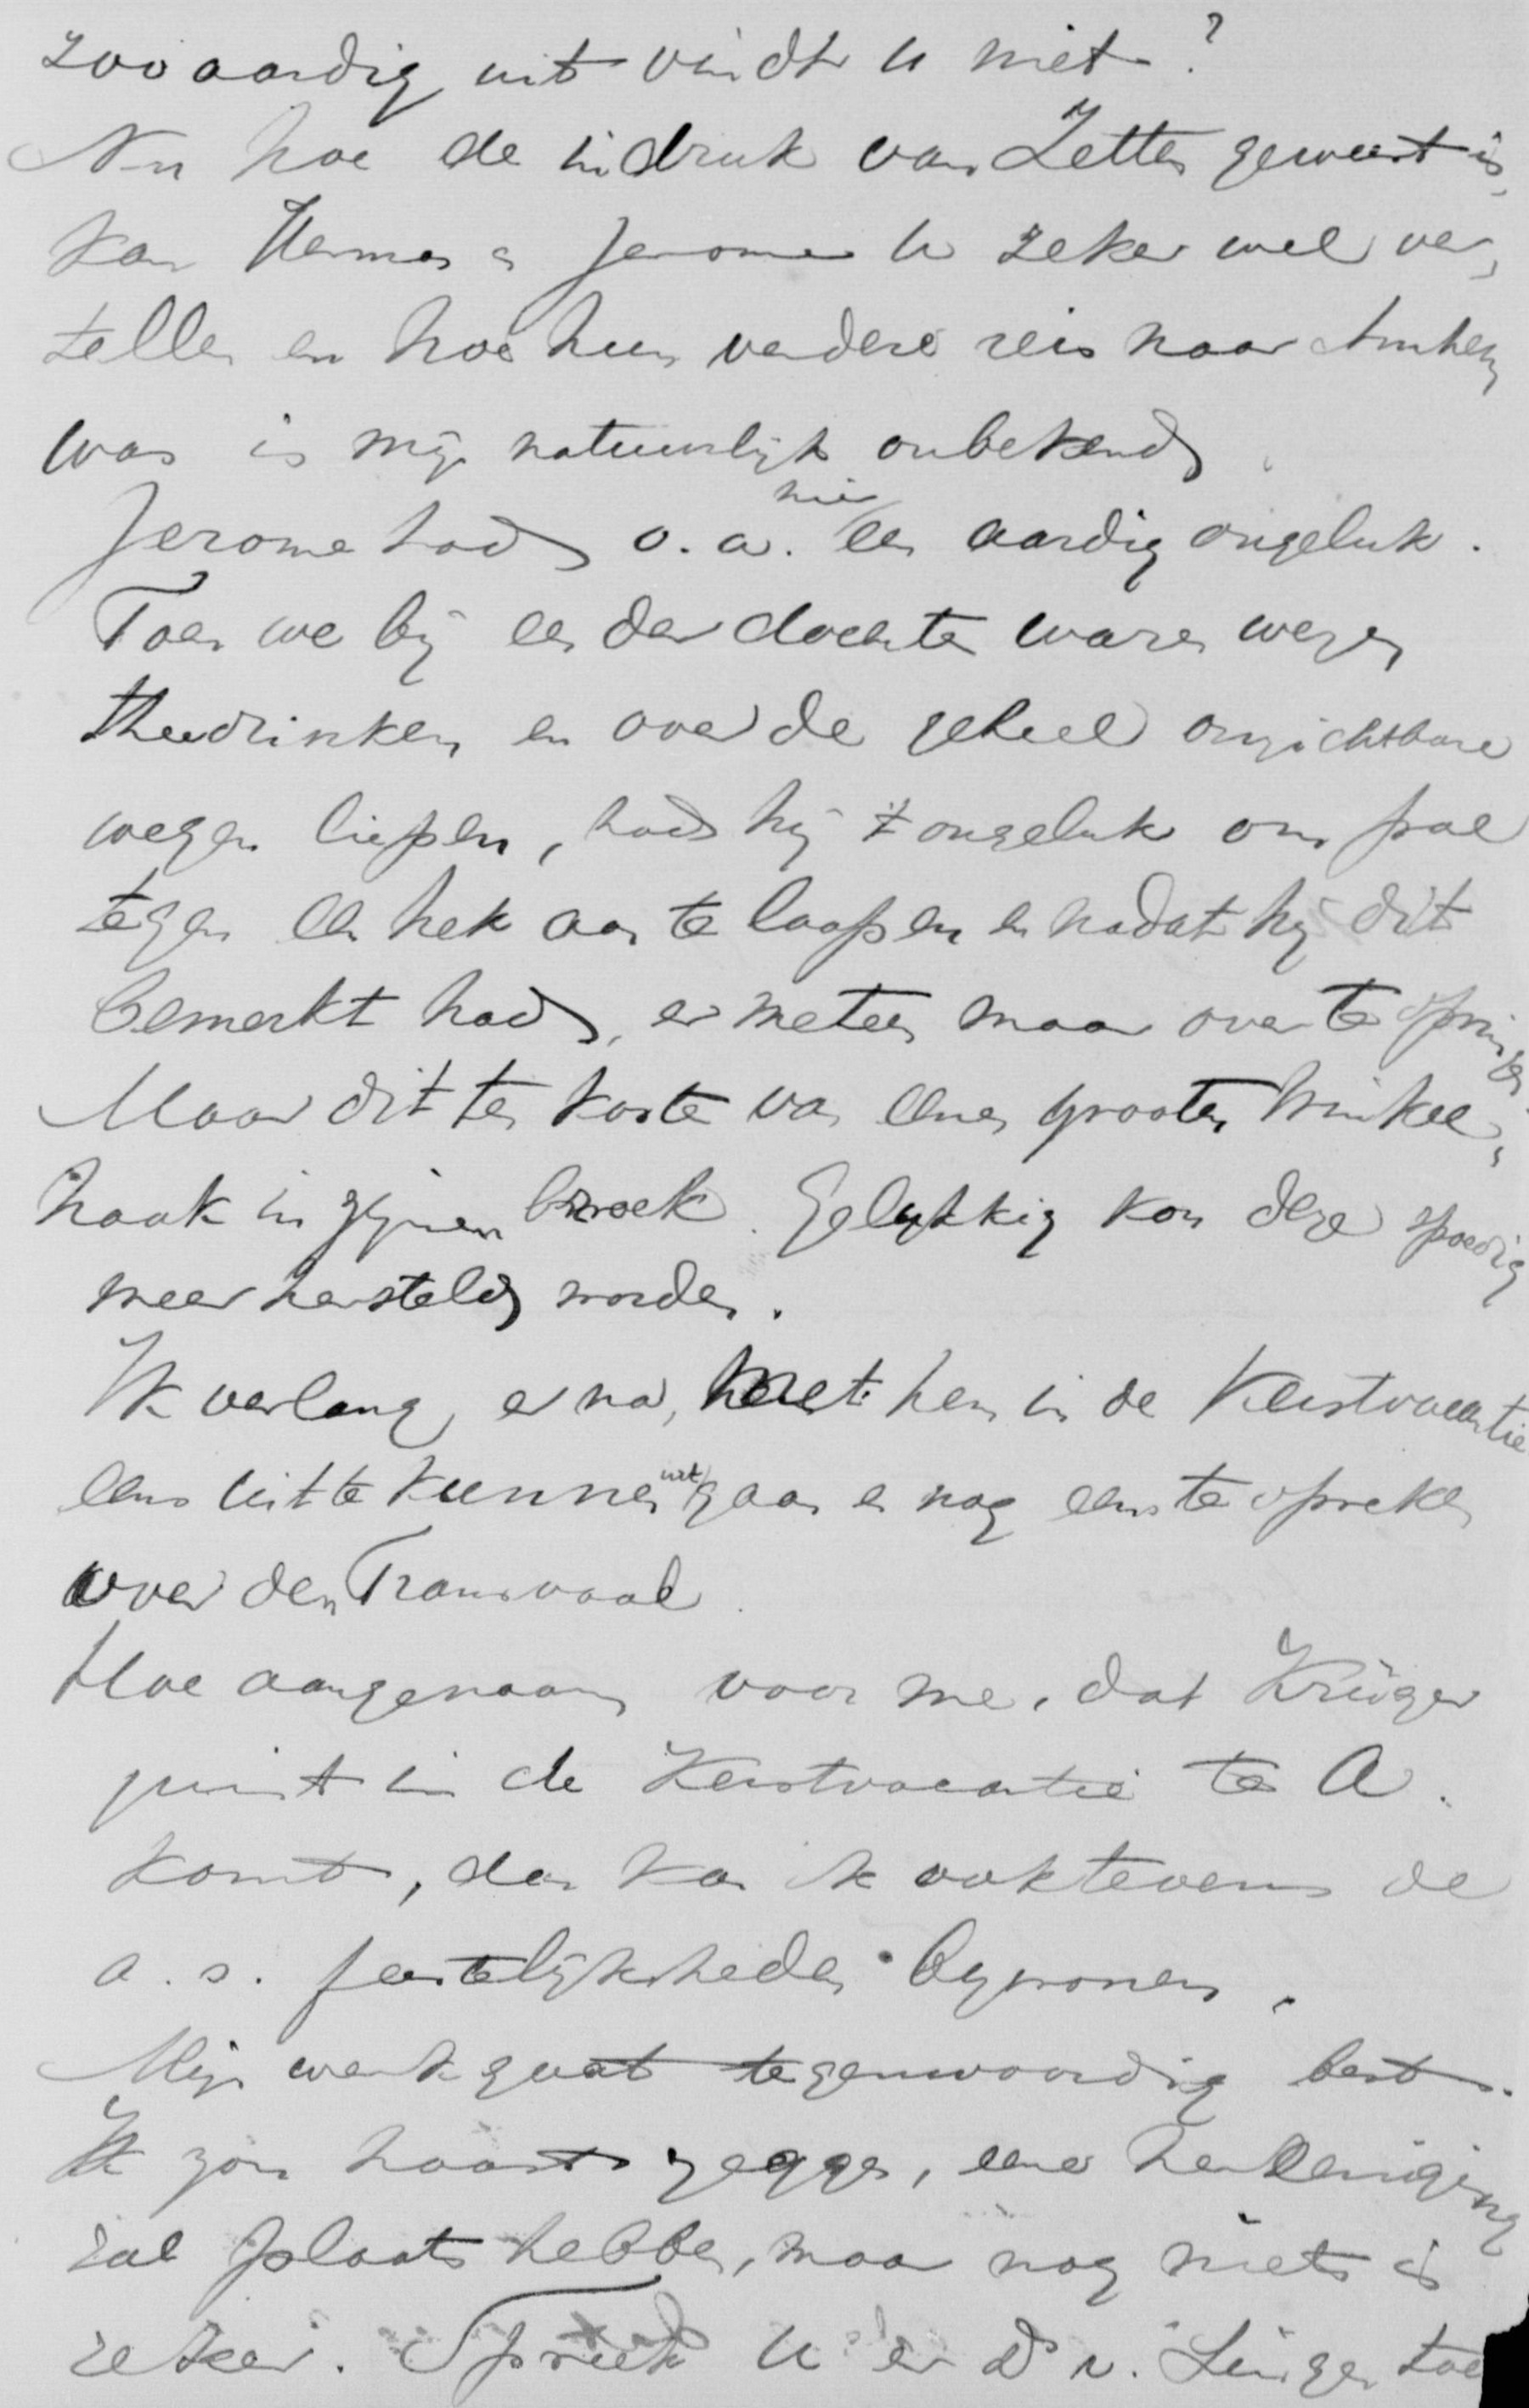 zoo aardig uit vindt u niet?
Nu hoe de indruk van Zetten geweest is,
kan Herman en Jerome u zeker wel ver,
tellen en hoe hun verdere reis naar Arnhem
was is mij natuurlijk onbekend.
Jerome had o.a. hier een aardig ongeluk.
Toen we bij een der docenten waren wezen
theedrinken en over de geheel onzichtbare
wegen liepen, had hij 't ongeluk om pal
tegen een hek aan te loopen en nadat hij dit
bemerkt had, er meteen maar over te springen.
Maar dit ten koste van eenen grooten winkel,
haak in zijnen broek. Gelukkig kon deze spoedig
weer hersteld worden.
Ik verlang er na, met hem in de Kerstvacantie
eens uit te kunnen gaan en nog eens te spreken
over den Transvaal.
Hoe aangenaam voor me, dat Krüger
juist in de Kerstvacantie te A.
komt, dan kan ik ook tevens de
a.s. feestelijkheden bijwonen.
Mijn werk gaat tegenwoordig best.
Ik zou haast zeggen, eene hereeniging
zal plaats hebben, maar nog niets is
zeker. Spreek u er D v. Lingen